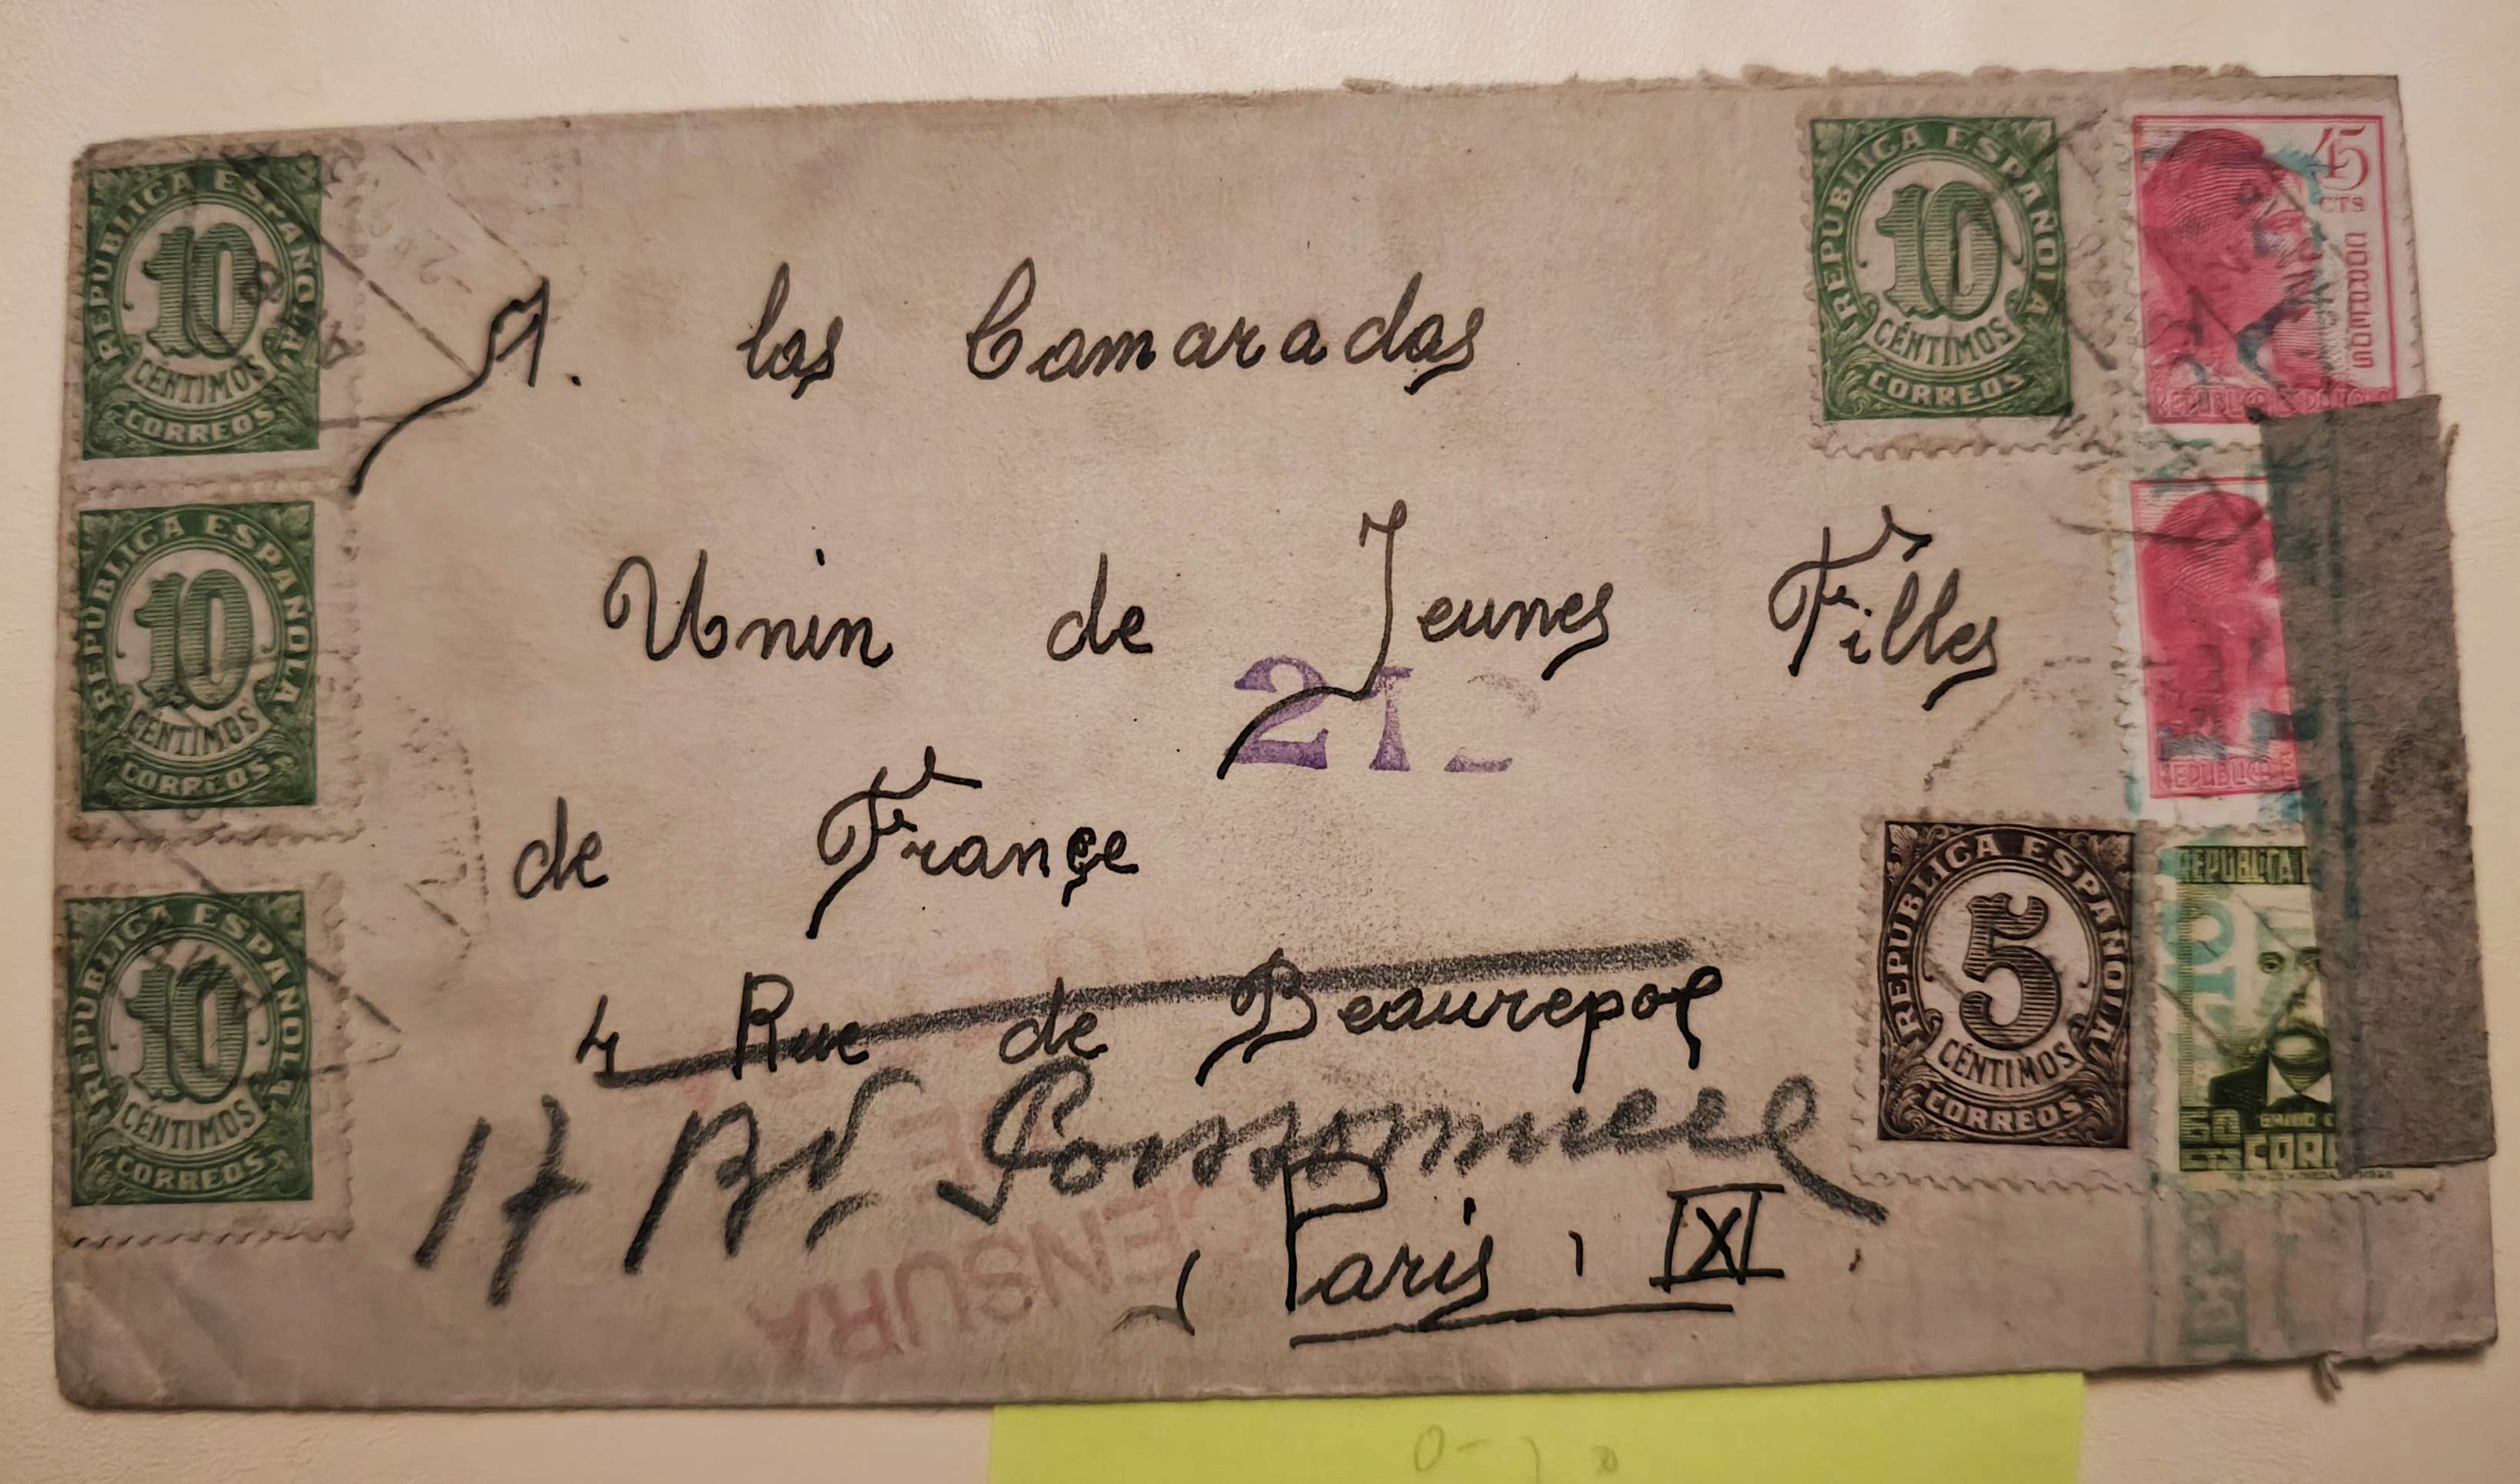 REPUBLICA ESPAÑOLA
10
CÉNTIMOS
CORREOS
REPUBLICA ESPAÑOLA
10
CÉNTIMOS
CORREOS
45
CTS
REPUBLICA ESPAÑOLA
A. las Camaradas
REPUBLICA ESPAÑOLA
10
CÉNTIMOS
CORREOS
Unin de Jeunes Filles
21
de France
REPUBLICA E
REPUBLICA ESPAÑOLA
10
CÉNTIMOS
CORREOS
REPUBLICA ESPAÑOLA
5
CÉNTIMOS
CORREOS
REPUBLICA
CORR
4 Rue de Beaurepoe
17 Bd
CENSURA
Paris, IX